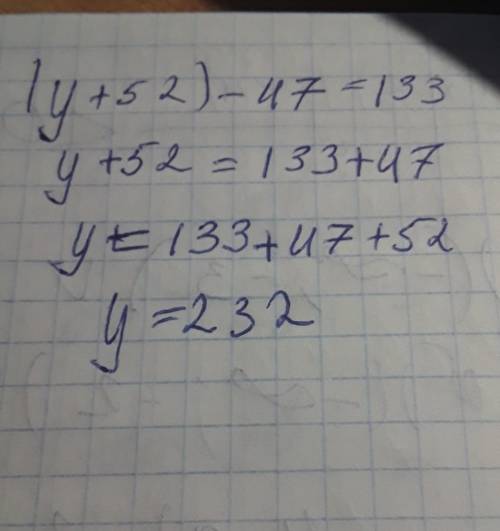 (y+52)-47=133
y+52=133+47
y=133+47+52
y=232